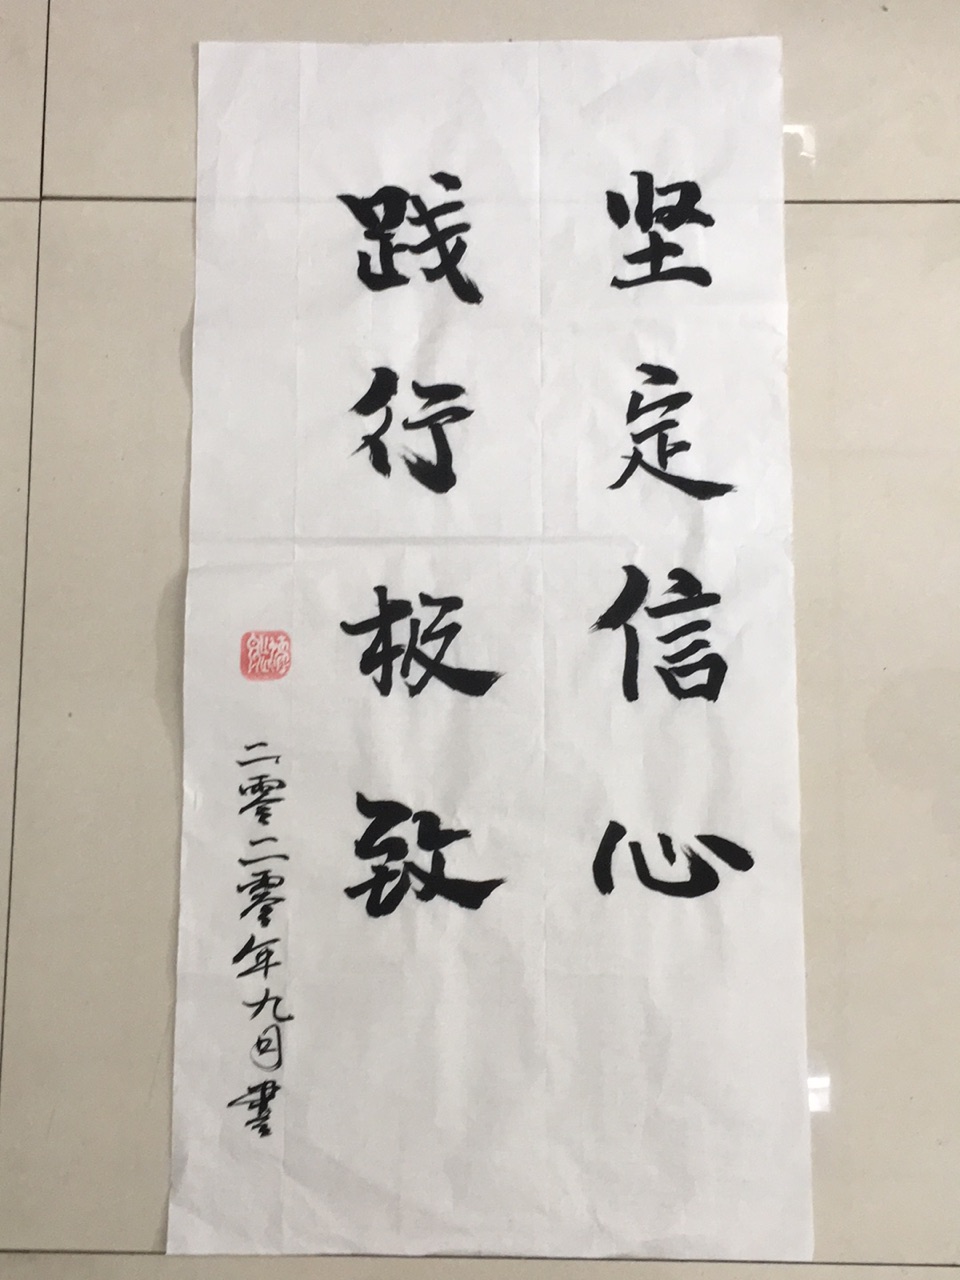 坚定信心
践行极致
二零二零年九月書